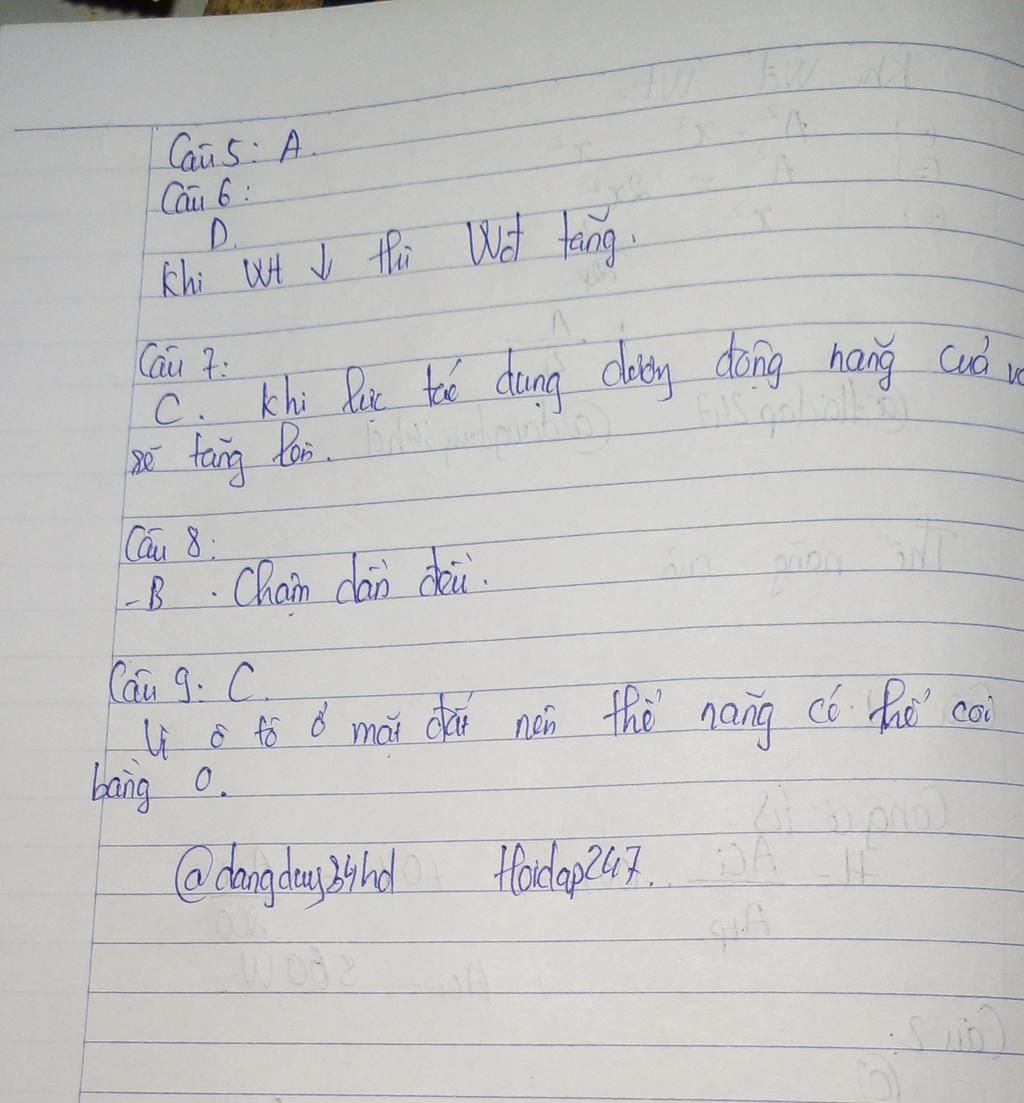 Câu 5: A.
Câu 6:
D.
Khi Wt ↓ thì Wđ tăng.
Câu 7:
C. Khi lực tác dụng dương động năng của
sẽ tăng lên.
Câu 8:
-B . Chậm dần đều.
Câu 9: C.
Vì ô tô ở mặt đất nên thế năng có thể coi
bằng 0.
@dangduy34hd Hoidap247.